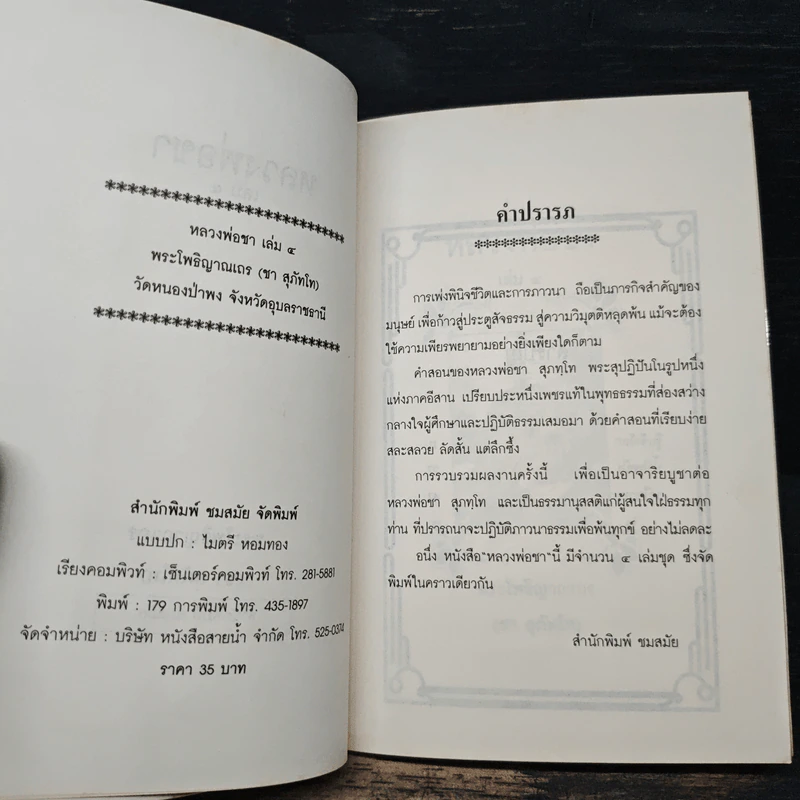 **************************
หลวงพ่อชา เล่ม ๔
พระโพธิญาณเถร (ชา สุภัทโท)
วัดหนองป่าพง จังหวัดอุบลราชธานี
**************************
สำนักพิมพ์ ชมสมัย จัดพิมพ์
แบบปก : ไมตรี หอมทอง
เรียงคอมพิวท์ : เซ็นเตอร์คอมพิวท์ โทร. 281-5881
พิมพ์ : 179 การพิมพ์ โทร. 435-1897
จัดจำหน่าย : บริษัท หนังสือสายน้ำ จำกัด โทร. 525-0374
ราคา 35 บาท
คำปรารภ
**************
การเพ่งพินิจชีวิตและการภาวนา ถือเป็นภารกิจสำคัญของ
มนุษย์ เพื่อก้าวสู่ประตูสัจธรรม สู่ความวิมุตติหลุดพ้น แม้จะต้อง
ใช้ความเพียรพยายามอย่างยิ่งเพียงใดก็ตาม
คำสอนของหลวงพ่อชา สุภทฺโท พระสุปฏิปันโนรูปหนึ่ง
แห่งภาคอีสาน เปรียบประหนึ่งเพชรแท้ในพุทธธรรมที่ส่องสว่าง
กลางใจผู้ศึกษาและปฏิบัติธรรมเสมอมา ด้วยคำสอนที่เรียบง่าย
สละสลวย ลัดสั้น แต่ลึกซึ้ง
การรวบรวมผลงานครั้งนี้ เพื่อเป็นอาจาริยบูชาต่อ
หลวงพ่อชา สุภทฺโท และเป็นธรรมานุสสติแก่ผู้สนใจใฝ่ธรรมทุก
ท่าน ที่ปรารถนาจะปฏิบัติภาวนาธรรมเพื่อพ้นทุกข์ อย่างไม่ลดละ
อนึ่ง หนังสือ"หลวงพ่อชา"นี้ มีจำนวน ๔ เล่มชุด ซึ่งจัด
พิมพ์ในคราวเดียวกัน
สำนักพิมพ์ ชมสมัย